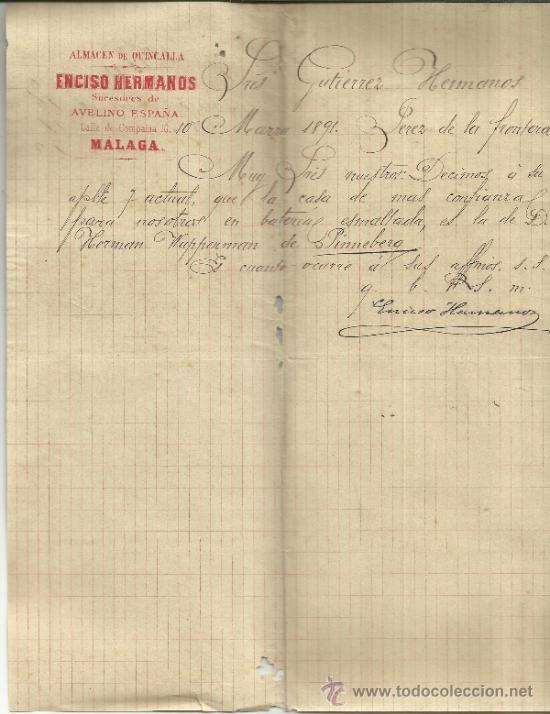 ALMACEN DE QUINCALLA
ENCISO HERMANOS
Sucesores de
AVELINO ESPAÑA
Calle de Compañia 10.
MALAGA.
Sres Gutierrez Hermanos
10 Marzo 1891. Jerez de la frontera
Muy Sres nuestros: Decimos á su
apble 7 actual, que la casa de mas confianza
para nosotros en bateria esmaltada, es la de D.
Herman Wupperman de Pinneberg
Es cuanto ocurre á sus affmos. s. s.
q. b. s. m.
Enciso Hermanos
www.todocoleccion.net